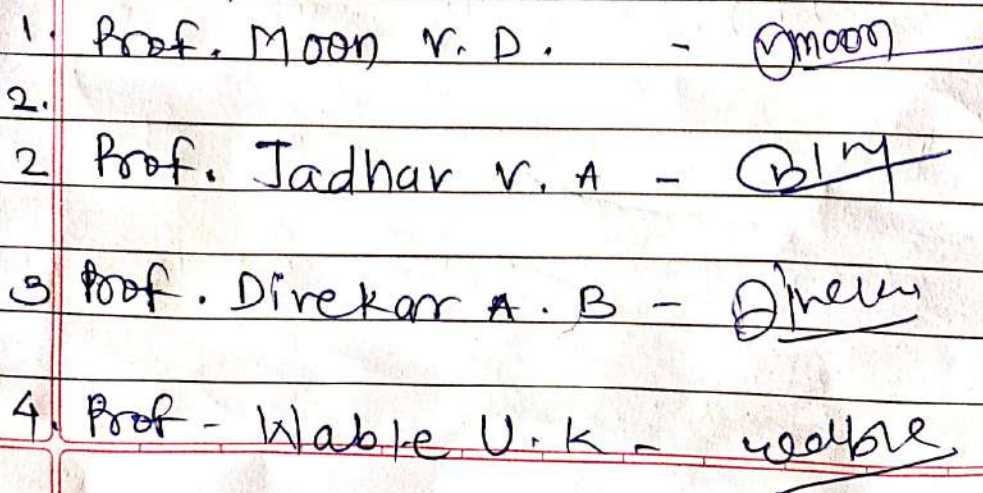 1. Prof. Moon V. D. - Vmoon
2.
2 Prof. Jadhav V. A -
3 Prof. Direkar A. B -
4. Prof - Wable U. K - wable